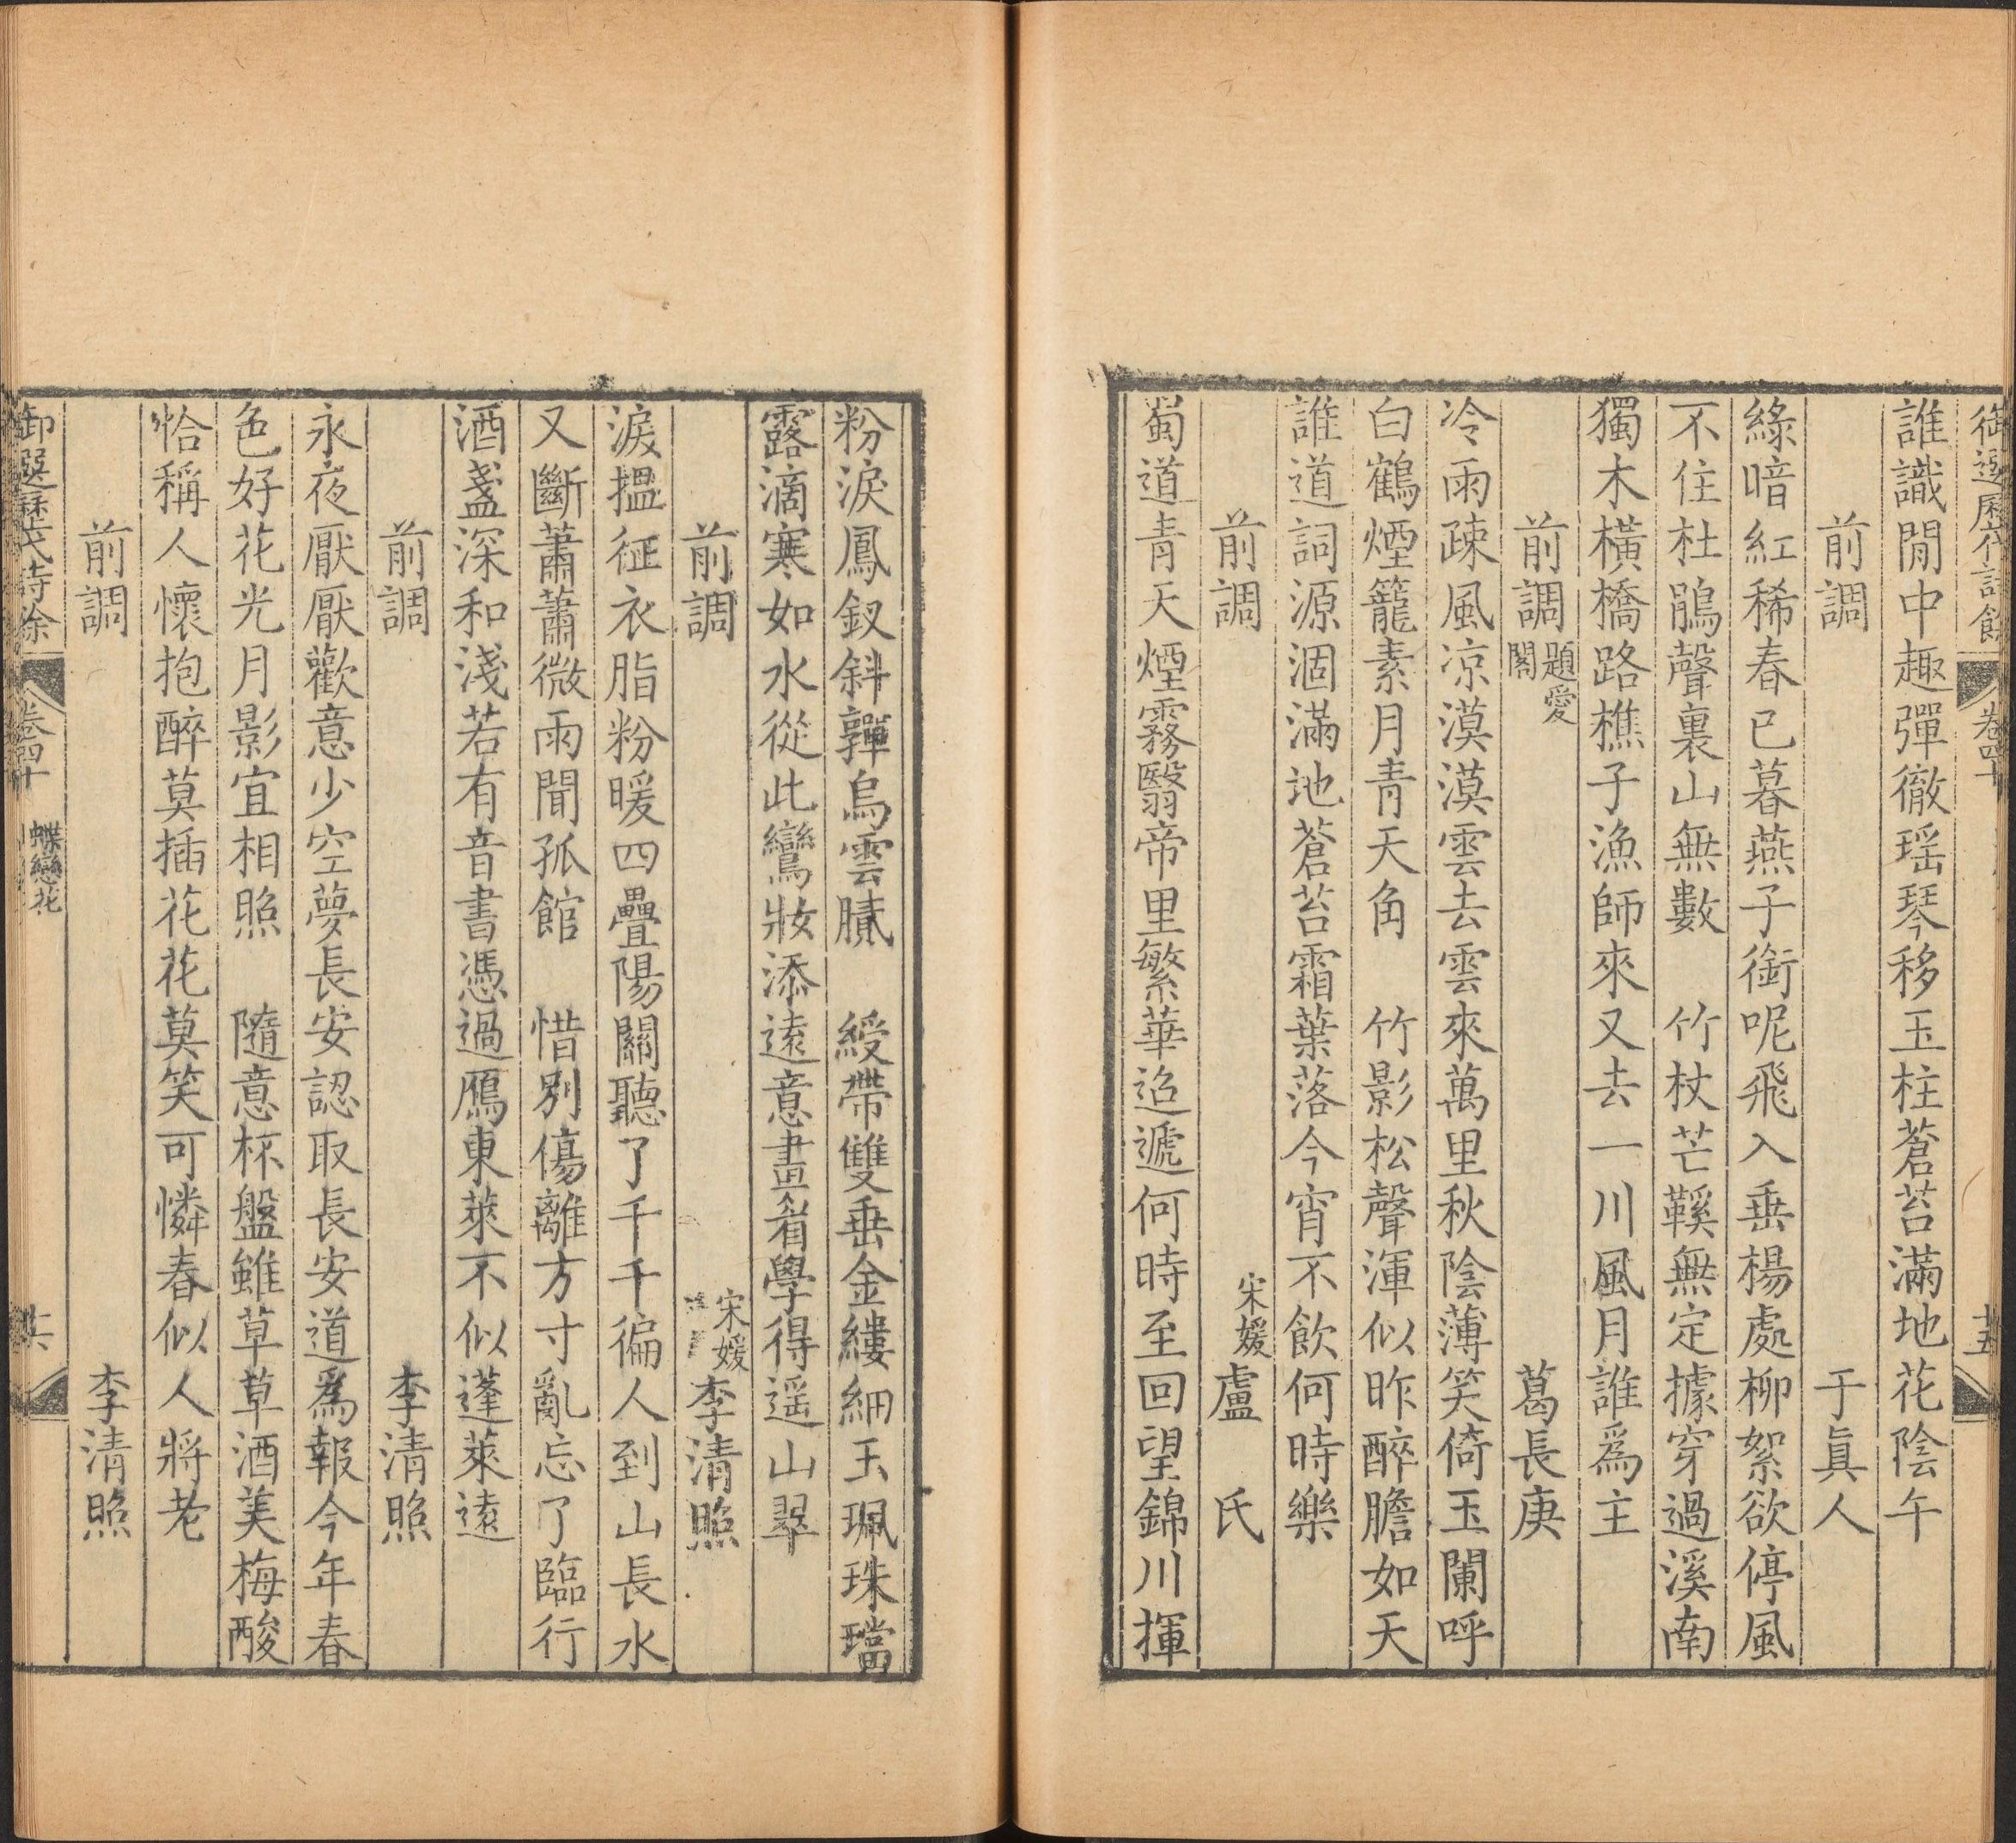 御選歷代詩餘 卷四十 十五
誰識閒中趣彈徹瑶琴移玉柱蒼苔滿地花陰午
前調 于眞人
綠暗紅稀春已暮燕子銜呢飛入垂楊處柳絮欲停風
不住杜鵑聲裏山無數 竹杖芒鞵無定據穿過溪南
獨木橫橋路樵子漁師來又去一川風月誰爲主
前調 題愛閣 葛長庚
冷雨疎風凉漠漠雲去雲來萬里秋陰薄笑倚玉闌呼
白鶴煙籠素月青天角 竹影松聲渾似昨醉膽如天
誰道詞源涸滿地蒼苔霜葉落今宵不飲何時樂
前調 宋媛 盧 氏
蜀道青天煙霧翳帝里繁華迢遞何時至回望錦川揮
粉淚鳳釵斜嚲烏雲膩 綬帶雙垂金縷細玉珮珠璫
露滴寒如水從此鸞妝添遠意畫眉學得遥山翠
前調 宋媛 李清照
淚搵征衣脂粉暖四疊陽關聽了千千徧人到山長水
又斷蕭蕭微雨聞孤館 惜別傷離方寸亂忘了臨行
酒盞深和淺若有音書憑過鴈東萊不似蓬萊遠
前調 李清照
永夜厭厭歡意少空夢長安認取長安道爲報今年春
色好花光月影宜相照 隨意杯盤雖草草酒美梅酸
恰稱人懷抱醉莫插花花莫笑可憐春似人將老
前調 李清照
御選歷代詩餘 卷四十 蝶戀花